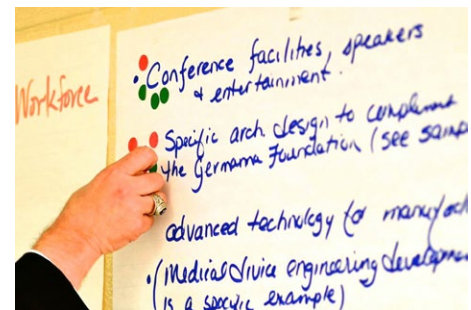 Workforce
• Conference facilities, speakers
& entertainment.
Specific arch design to complement
the Germania Foundation (see samp
advanced technology for manufact
• (Medical divice engineering developme
is a specific example)